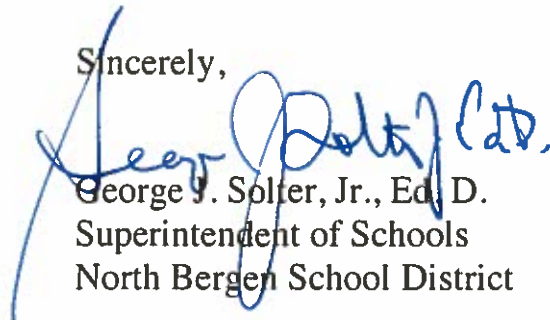 Sincerely,
George J. Solter, Jr., Ed. D.
Superintendent of Schools
North Bergen School District